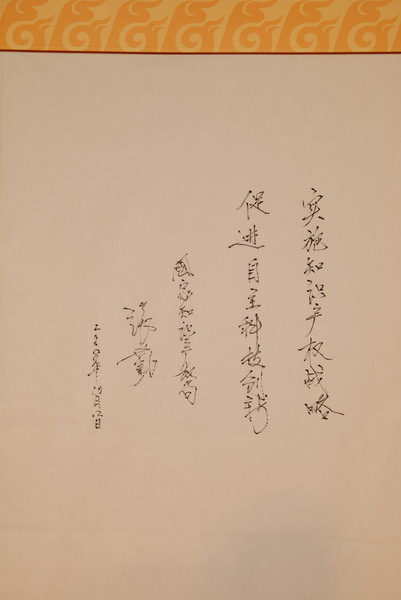 实施知识产权战略
促进自主科技创新
国家知识产权局
张勤